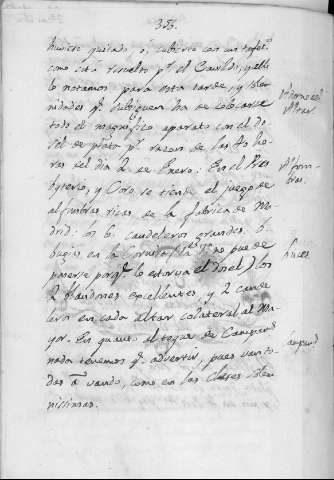 356.
huviere quitado, ò cubierto con un tafet.ⁿ
como está resuelto p.ʳ el Cavildo, y allí
lo notamos para esta tarde, y solem-
nidades q.ᵉ subsiguen ha de colocarse
todo el magnifico aparato con el do-
sel de plata p.ʳ razon de las 40 ho-
ras del dia 2 de Enero: En el Pres-
byterio, y Coro se tiende el juego de
alfombras ricas de la fabrica de Ma-
drid: los 6 candeleros grandes. 6
bugias en la Cornisa (las 7 no pue de
ponerse porq.ᵉ lo estorva el dosel) los
2 blandones excelentes, y 2 cande
leros en cada altar colateral al Ma-
yor. En quanto al toque de Campa
nada tenemos q.ᵉ advertir, pues van to-
das à vando, como en las Clases Solem-
nissimas.
Adorno del
Altar.
Alfom-
bras.
Luces.